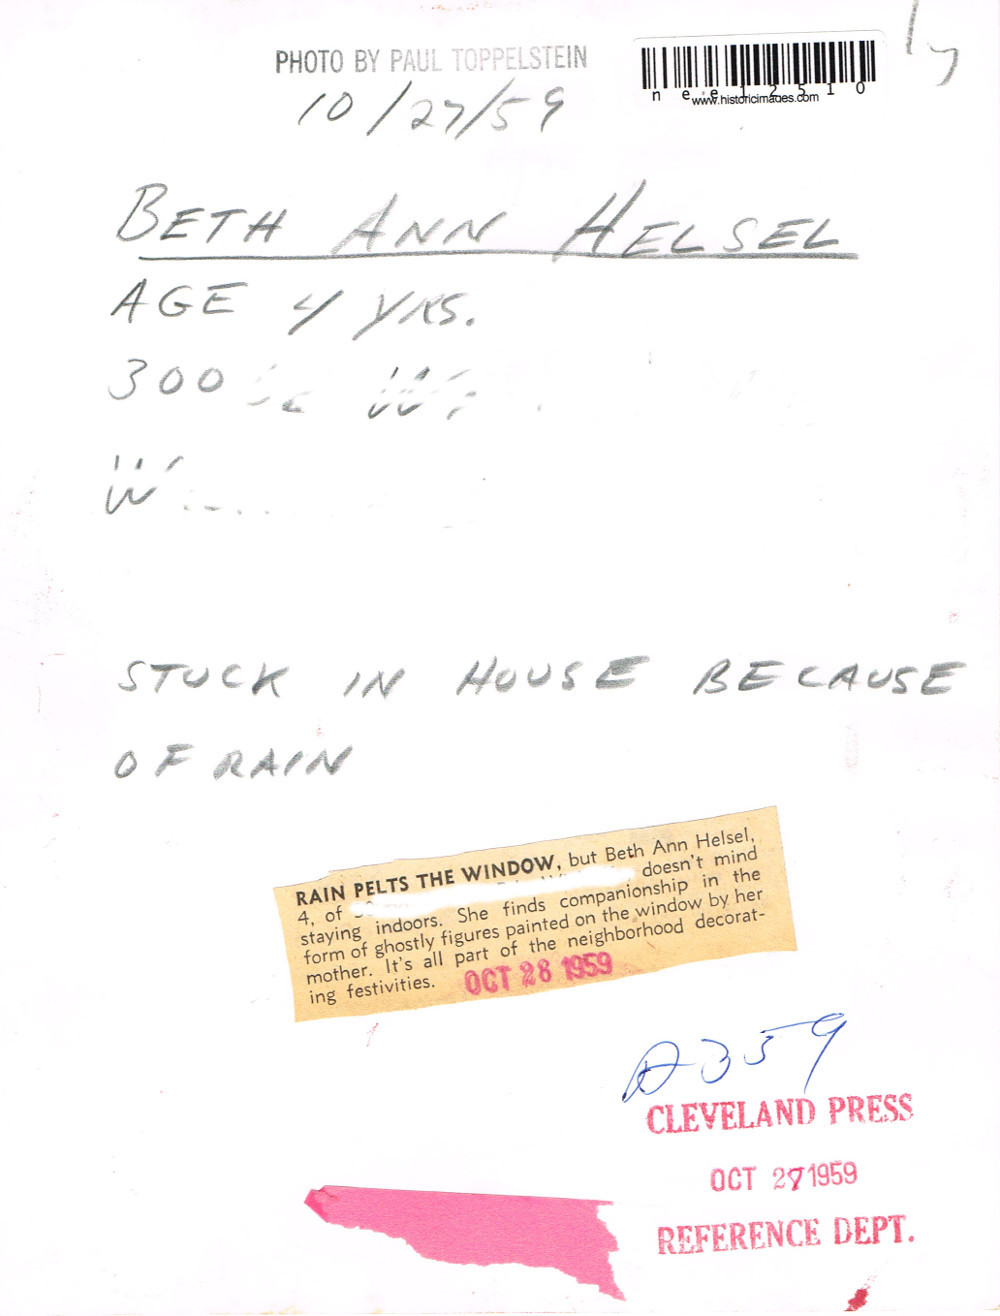 PHOTO BY PAUL TOPPELSTEIN
10/27/59
nee12510
www.historicimages.com
BETH ANN HELSEL
AGE 4 YRS.
300
W
W
STUCK IN HOUSE BECAUSE
OF RAIN
RAIN PELTS THE WINDOW, but Beth Ann Helsel,
4, of doesn't mind
staying indoors. She finds companionship in the
form of ghostly figures painted on the window by her
mother. It's all part of the neighborhood decorat-
ing festivities.
OCT 28 1959
A359
CLEVELAND PRESS
OCT 27 1959
REFERENCE DEPT.